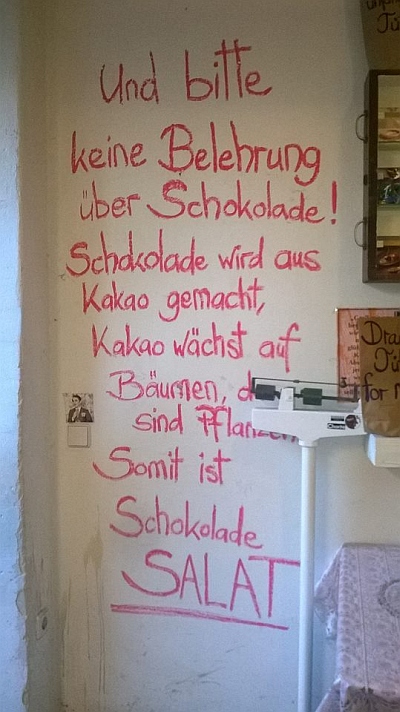 Und bitte
keine Belehrung
über Schokolade!
Schokolade wird aus
Kakao gemacht,
Kakao wächst auf
Bäumen,
sind Pflanzen
Somit ist
Schokolade
SALAT
for